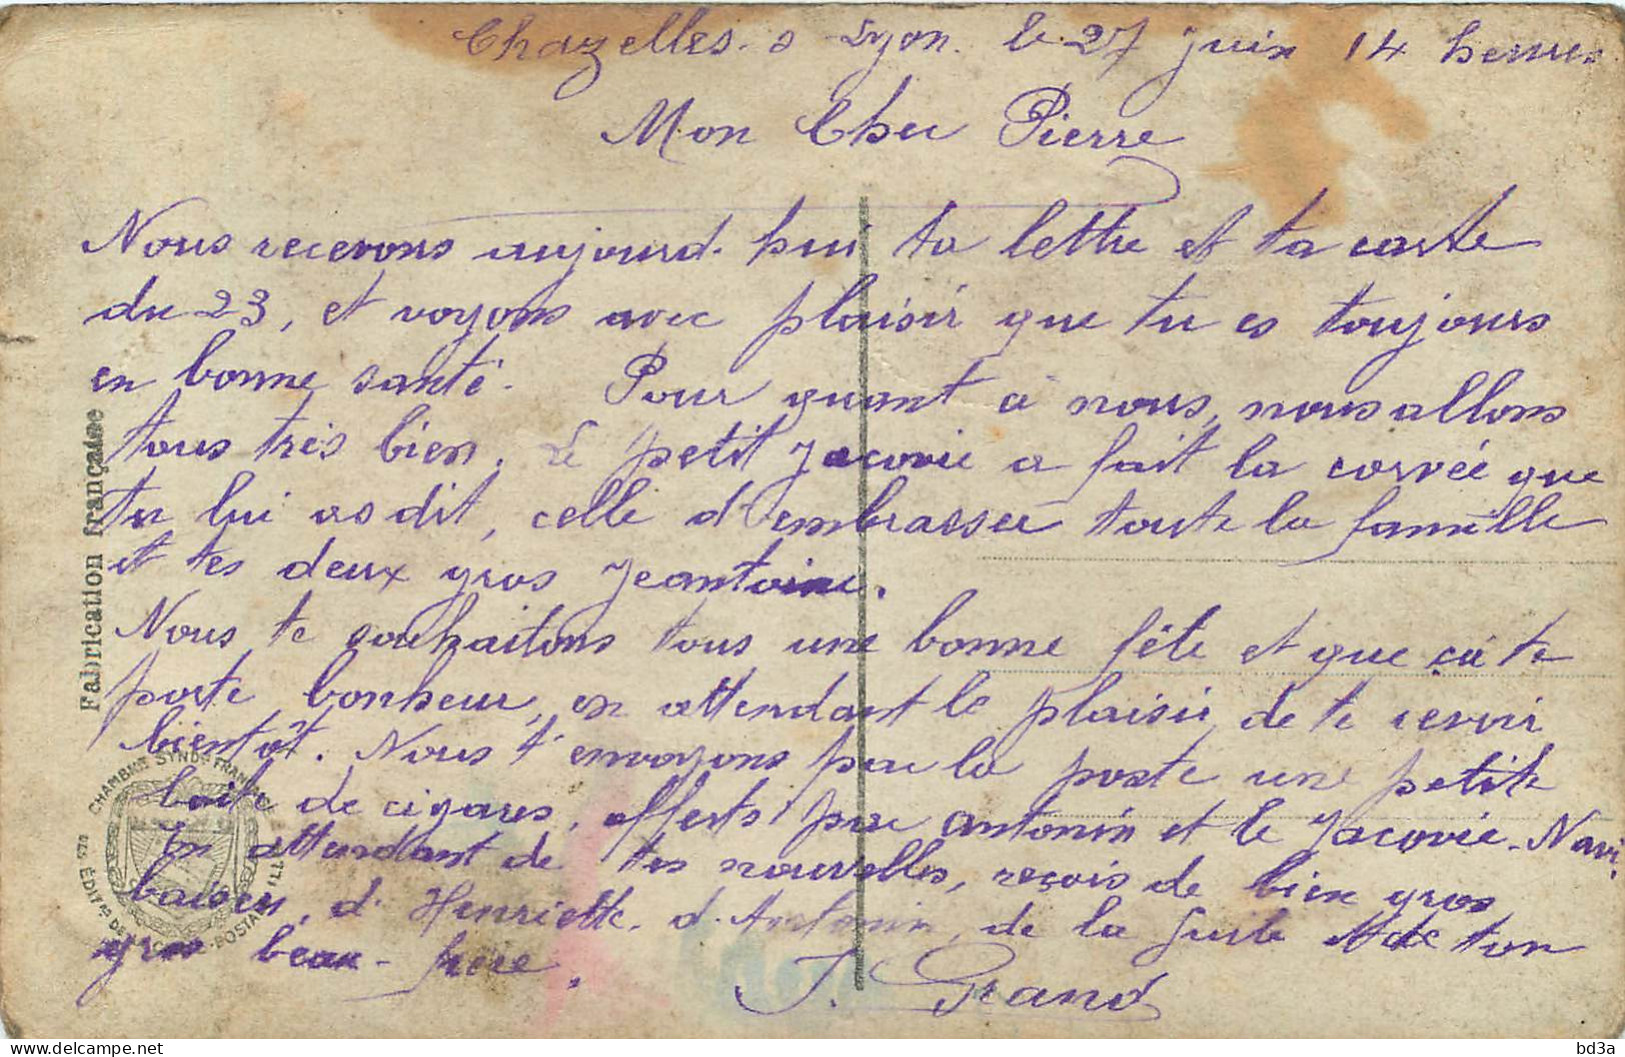 Chazelles. s Lyon. le 27 juin 14 heures
Mon Cher Pierre
Nous recevons aujourd. hui ta lettre et ta carte
du 23, et voyons avec plaisir que tu es toujours
en bonne santé. Pour quant à nous, nous allons
tous très bien. Le petit Jacovie a fait la corvée que
tu lui as dit, celle d'embrasser toute la famille
et tes deux gros Jeantoine.
Nous te souhaitons tous une bonne fête et que ça te
porte bonheur, en attendant le plaisir, de te revoir
bientôt. Nous t'envoyons par la poste une petite
boite de cigares, offerts par Antonin et le Jacovie. Navi.
En attendant de tes nouvelles, reçois de bien gros
baisers, d'Henriette, d'Antonin, de la et de ton
gros beau-frère. J. Grand
Fabrication française
CHAMBRE SYNDle FRANÇAISE
DES EDITrs DE LA CARTE POSTALE ILLUSTRÉE
bd3a